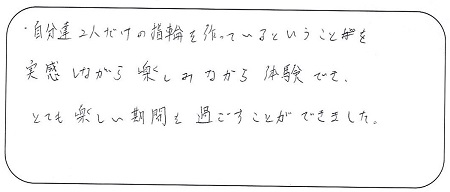 ・自分達2人だけの指輪を作っているということを
実感しながら楽しみながら体験でき、
とても楽しい期間を過ごすことができました。